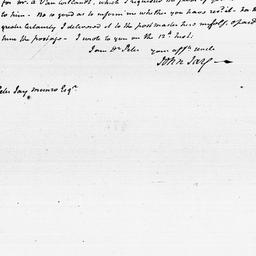 for Mr. a Van
to him - Be so good as to inform me whether you have rec'd it - for the
greater certainty I delivered it to the post master here myself, & paid
him the postage - I wrote to you on the 12th Inst:
I am Dr. Peter your afft. uncle
John Jay
Peter Jay Munro Esqr.